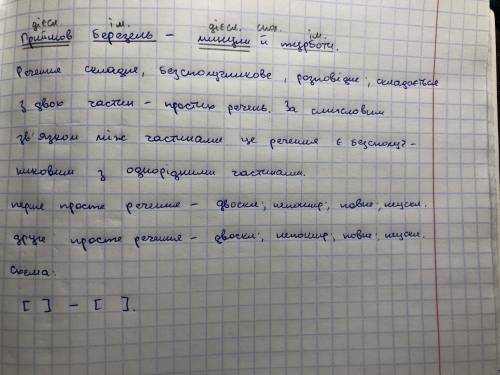 дієсл. ім. дієсл. спол. ім.
Прийшов березень – минули й турботи.
Речення складне, безсполучникове, розповідне, складається
з двох частин – простих речень. За смисловим
зв'язком між частинами це речення є безсполуч-
никовим з однорідними частинами.
перше просте речення – двоскл., непошир., повне, нескл.
друге просте речення – двоскл., непошир., повне, нескл.
Схема:
[ ] – [ ].